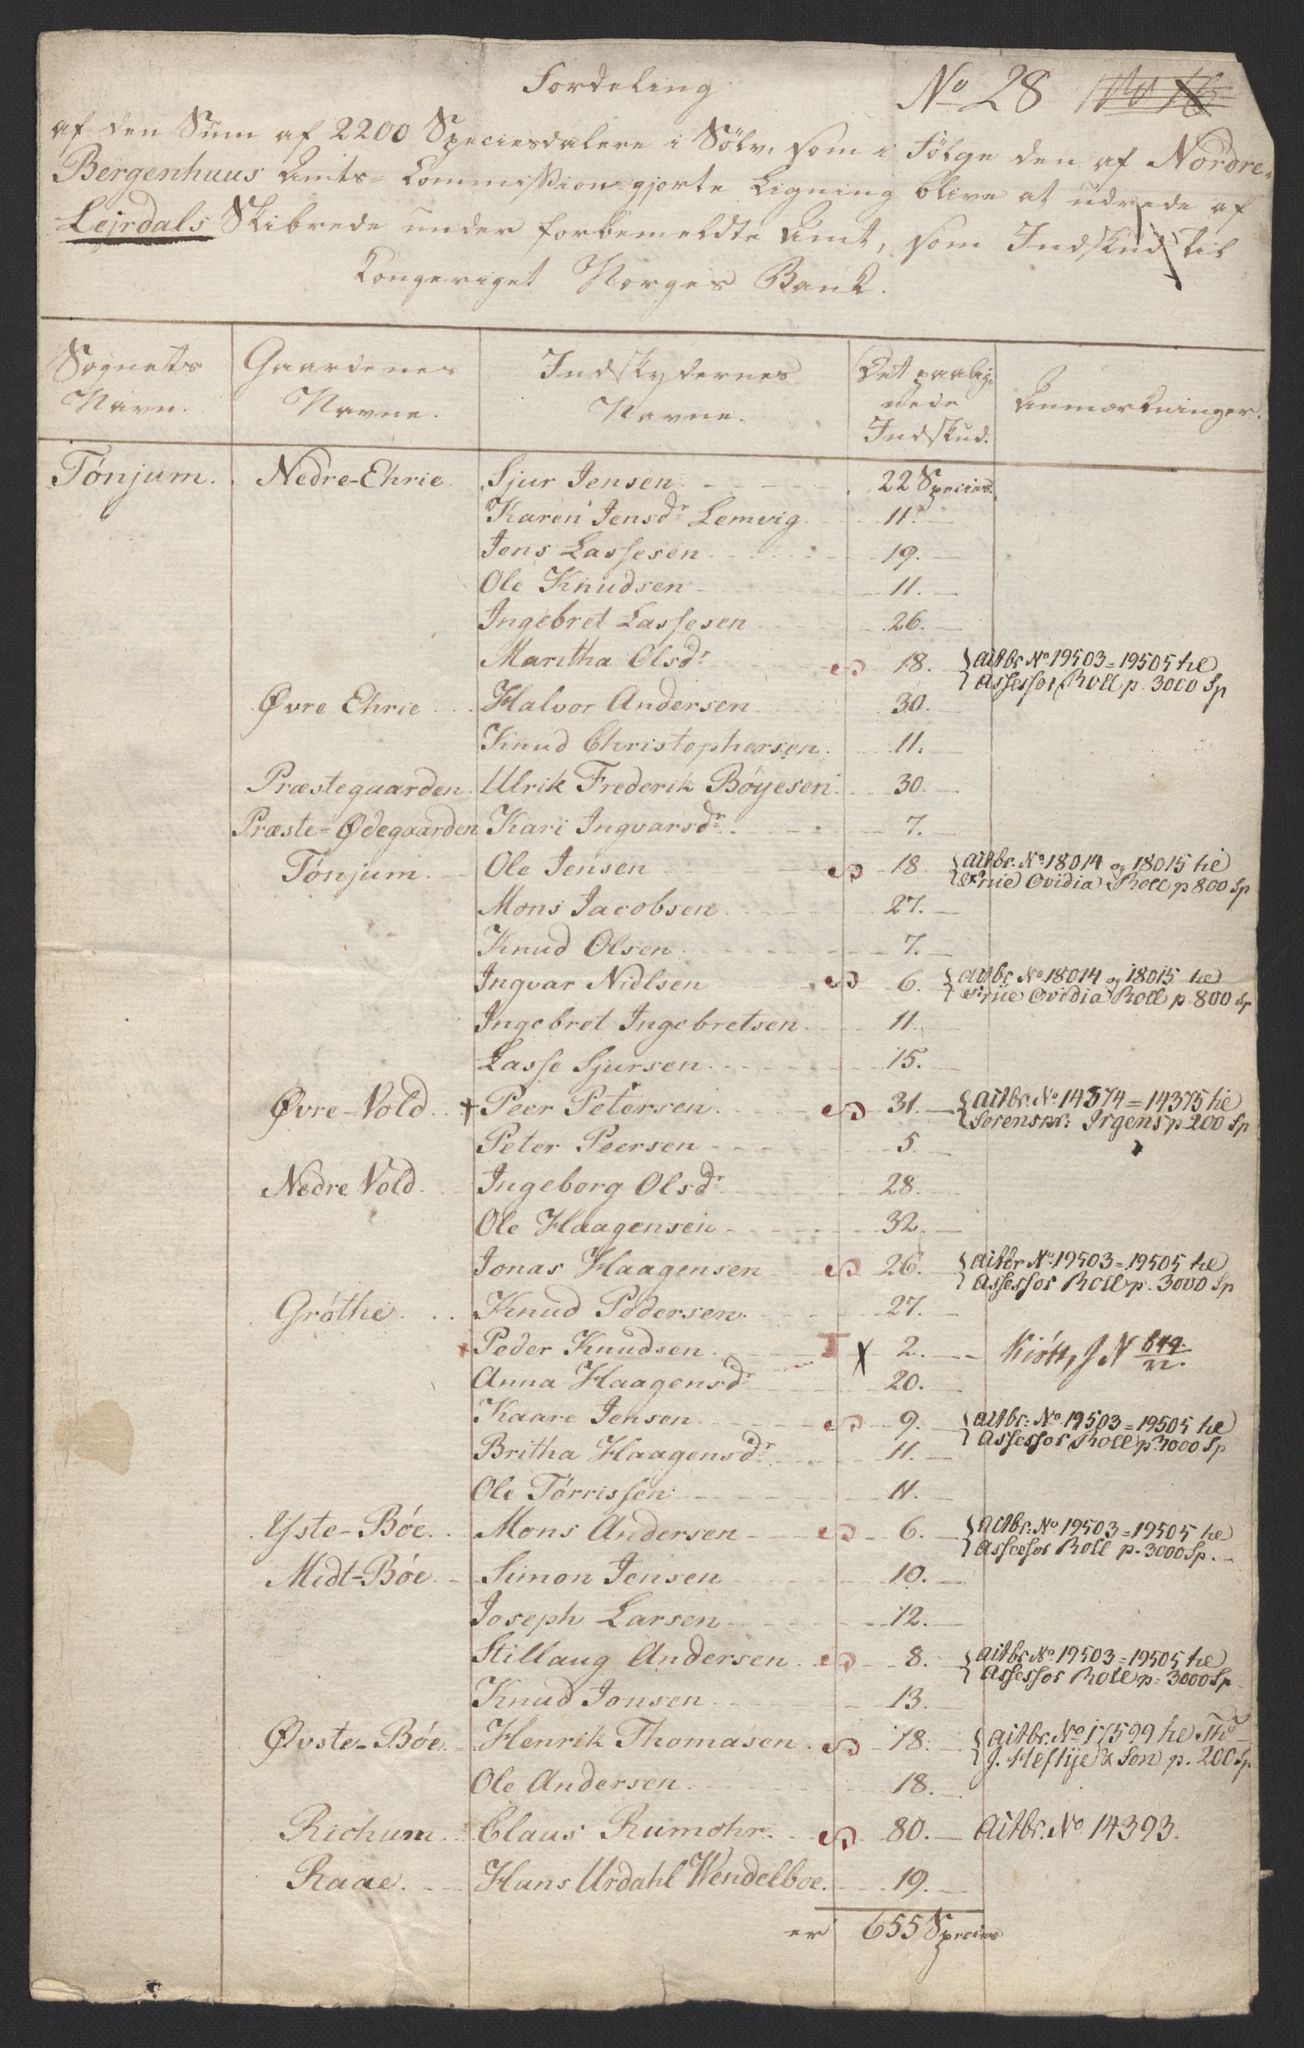 Fordeling
No 28
af den Sum af 2200 Speciesdalere i Sølv, som i Følge den af Nordre-
Bergenhuus Amts-Commission gjorte Ligning blive at udrede af
Lejrdals Skibrede under forbemeldte Amt, som Indskud til
Kongeriget Norges Bank.
Sognets Navn. Gaardenes Navne. Indskydernes Navne. Det paalignede Indskud. Anmærkninger.
Tønjum. Nedre-Ehrie Sjur Jensen 22 Species.
Karen Jensdr Lemvig 11.
Jens Lassesen 19.
Ole Knudsen 11.
Ingebret Lassesen 26.
Maritha Olsdr 18. actbr No 19503=19505 he
Assessor Roll p. 3000 Sp
Øvre Ehrie Halvor Andersen 30.
Knud Christophersen 11.
Præstegaarden Ulrik Frederik Böyesen 30.
Præste-Ødegaarden Kari Ingvarsdr 7.
Tønjum Ole Jensen 18. actbr. No 18014 og 18015 he
Ovidia Roll p 800 Sp
Mons Jacobsen 27.
Knud Olsen 7.
Ingvar Nidlsen 6. actbr No 18014 og 18015 he
Ovidia Roll p 800 Sp
Ingebret Ingebretsen 11.
Lasse Sjursen 15.
Øvre-Vold + Peer Petersen 31. actbr. No 14374=14375 he
Sorenspr: Irgens p 200 Sp
Peter Peersen 5.
Nedre Vold Ingeborg Olsdr 28.
Ole Haagensen 32.
Jonas Haagensen 26. actbr No 19503=19505 he
Assessor Roll p. 3000 Sp
Grøthe Knud Pedersen 27.
Peder Knudsen I X 2.
Anna Haagensdr 20.
Kaare Jensen 9. actbr: No 19503=19505 he
Assessor Roll p. 3000 Sp
Britha Haagensdr 11.
Ole Tørrissen 11.
Yste-Bøe Mons Andersen 6. actbr. No 19503=19505 he
Assessor Roll p. 3000 Sp.
Midt-Bøe Simon Jensen 10.
Joseph Larsen 12.
Stillaug Andersen 8. actbr No 19503=19505 he
Assessor Roll p: 3000 Sp
Knud Jonsen 13.
Øvste-Bøe Henrik Thomasen 18. actbr. No 17599 he Th
J. Heftije & Søn p. 200 Sp
Ole Andersen 18.
Richum Claus Rumohr 80. actbr. No 14393.
Raae. Hans Urdahl Wendelboe 19.
er 655 Species